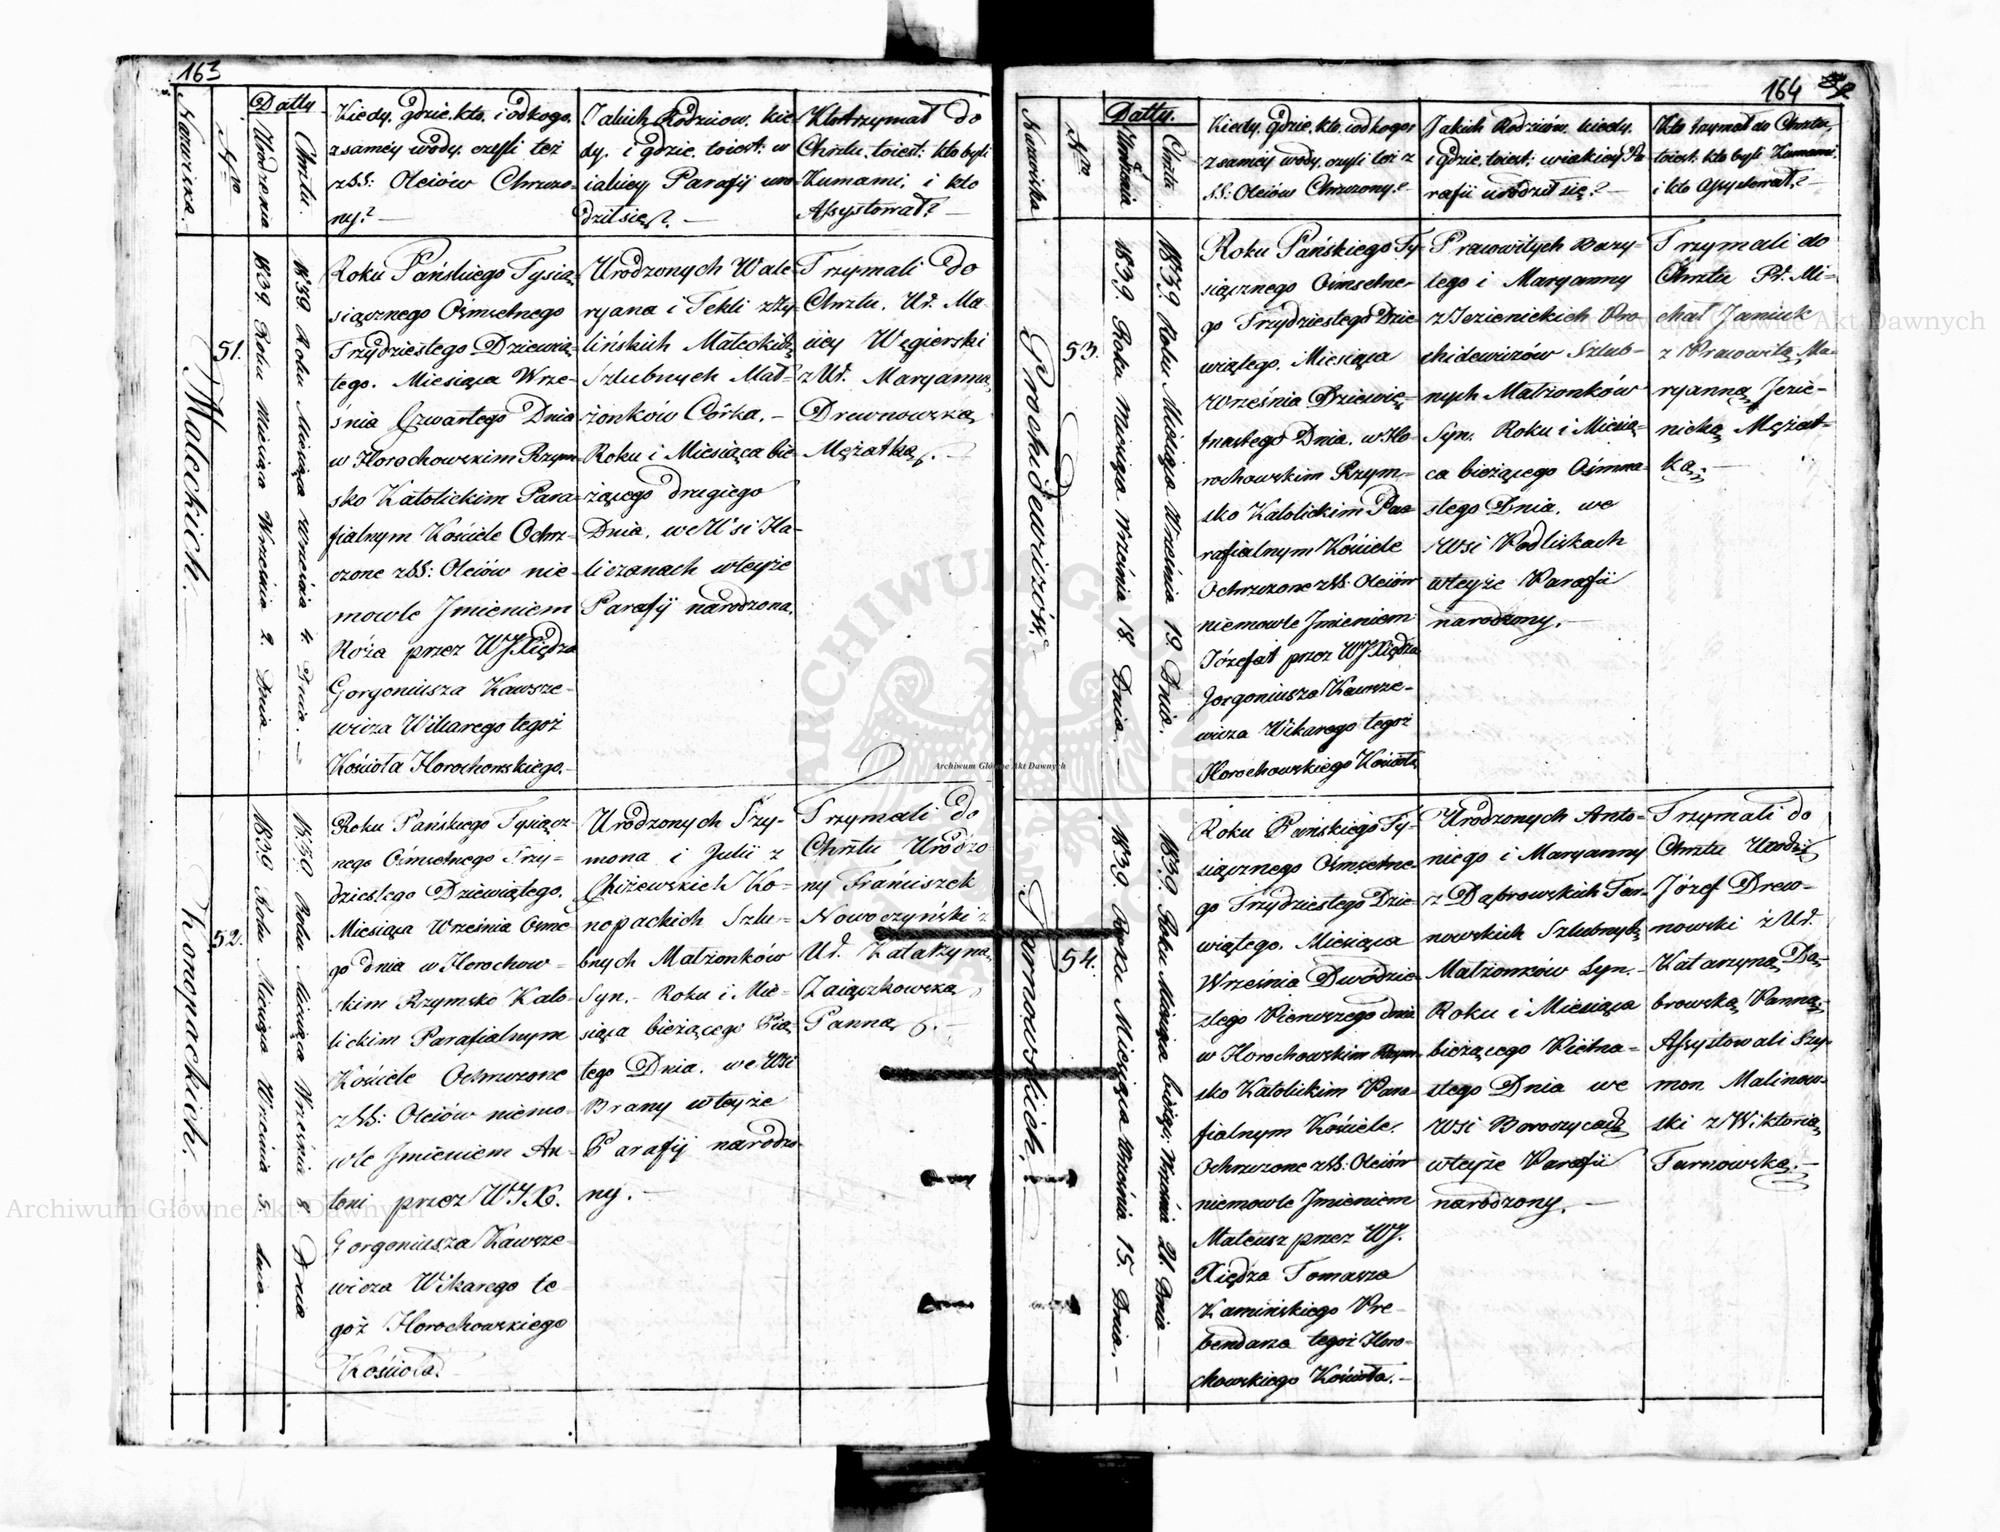 163
Nazwiska.
Nro
Datty
Urodzenia
Chrztu.
Kiedy, gdzie, kto, i od kogo,
z samey wody, czyli też
z SS: Oleiów Chrzczo-
ny? —
Jakich Rodziców, kie-
dy, i gdzie, toiest: w
iakiey Parafij uro-
dził się? —
Kto trzymał do
Chrztu, toiest: kto byli
Kumami, i kto
Assystował? —
Małeckich.
51.
1839 Roku Miesiąca Września 2. Dnia. —
1839 Roku Miesiąca Września 4. Dnia. —
Roku Pańskiego Tysią-
siącznego Ośmsetnego
Trzydziestego Dziewią-
tego. Miesiąca Wrze-
śnia Czwartego Dnia
w Horochowskim Rzym-
sko Katolickim Para-
fialnym Kościele Ochrz-
czone z SS: Oleiów nie-
mowle Jmieniem
Róża przez WJ Xiędza
Gorgoniusza Kawsze-
wicza Wikarego tegoż
Kościoła Horochowskiego.—
Urodzonych Wale-
ryana i Tekli z Ży-
lińskich Małeckich
Szlubnych Mał-
żonków Córka. —
Roku i Miesiąca bie-
żącego drugiego
Dnia, we Wsi Ha-
liczanach wteyże
Parafij narodzona.
Trzymali do
Chrztu. Ur. Ma-
ciey Węgierski
z Ur. Maryanną
Drewnowską
Mężatką. —
Konopackich.
52.
1839 Roku Miesiąca Września 5. dnia.
1839 Roku Miesiąca Września 8 Dnia
Roku Pańskiego Tysiącz-
nego Ośmsetnego Trzy-
dziestego Dziewiątego.
Miesiąca Września Osme-
go dnia w Horochow-
skim Rzymsko Kato-
lickim Parafialnym
Kościele Ochrzczone
z SS: Oleiów niemo-
wle Jmieniem An-
toni przez W.J.X.
Gorgoniusza Kawsze-
wicza Wikarego te-
goż Horochowskiego
Kościoła.
Urodzonych Szy-
mona i Julii z
Chiżewskich Ko-
nopackich Szlu-
bnych Małżonków
Syn. — Roku i Mie-
siąca bieżącego Pią-
tego Dnia. we Wsi
Brany wteyże
Parafij narodzo-
ny. —
Trzymali do
Chrztu Urodzo-
ny Franciszek
Nowoczyński z
Ur. Katarzyną
Zaiączkowską
Panną. —
164
Nazwiska
Nro
Datty.
Urodzenia
Chrztu
Kiedy, gdzie, kto, i od kogo,
z samey wody, czyli też z
SS: Oleiów Chrzczony? —
Jakich Rodziców, kiedy,
i gdzie, toiest: w iakiey Pa-
rafii urodził się? —
Kto trzymał do Chrztu,
toiest: kto byli Kumami,
i kto Assystował? —
Prochidewiczów.
53.
1839. Roku Miesiąca Września 18. Dnia. —
1839. Roku Miesiąca Września 19. Dnia.
Roku Pańskiego Ty-
siącznego Ośmsetne-
go Trzydziestego Dzie-
wiątego. Miesiąca
Września Dziewię-
tnastego Dnia. w Ho-
rochowskim Rzym-
sko Katolickim Pa-
rafialnym Kościele
Ochrzczone z SS: Oleiów
niemowle Jmieniem
Józefat przez WJ Xiędza
Gorgoniusza Kawsze-
wicza Wikarego tegoż
Horochowskiego Kościoła
Pracowitych Bazy-
lego i Maryanny
z Jezienickich Pro-
chidewiczów Szlub-
nych Małżonków
Syn. Roku i Miesią-
ca bieżącego Ośmna-
stego Dnia, we
Wsi Podliskach
wteyże Parafii
narodzony. —
Trzymali do
Chrztu Pr. Mi-
chał Janiuk
z Pracowitą Ma-
ryanną Jezie-
nicką Mężat-
ką. —
Tarnowskich.
54.
1839. Roku Miesiąca Września 15. Dnia. —
1839. Roku Miesiąca bieżąc: Września 21. Dnia —
Roku Pańskiego Ty-
siącznego Ośmsetne-
go Trzydziestego Dzie-
wiątego. Miesiąca
Września Dwódzie-
stego Pierwszego dnia
w Horochowskim Rzym-
sko Katolickim Para-
fialnym Kościele.
Ochrzczone z SS: Oleiów
niemowle Jmieniem
Mateusz przez WJ.
Xiędza Tomasza
Kamińskiego Pre-
bendarza tegoż Horo-
chowskiego Kościoła. —
Urodzonych Anto-
niego i Maryanny
z Dąbrowskich Tar-
nowskich Szlubnych
Małżonków Syn. —
Roku i Miesiąca
bieżącego Piętna-
stego Dnia we
Wsi Boroczycach
wteyże Parafii
narodzony. —
Trzymali do
Chrztu Urodz:
Józef Drew-
nowski z Ur.
Katarzyną Dą-
browską Panną,
Assystowali Szy-
mon Malinow-
ski z Wiktorią
Tarnowską. —
Archiwum Główne Akt Dawnych
Archiwum Główne Akt Dawnych
Archiwum Główne Akt Dawnych